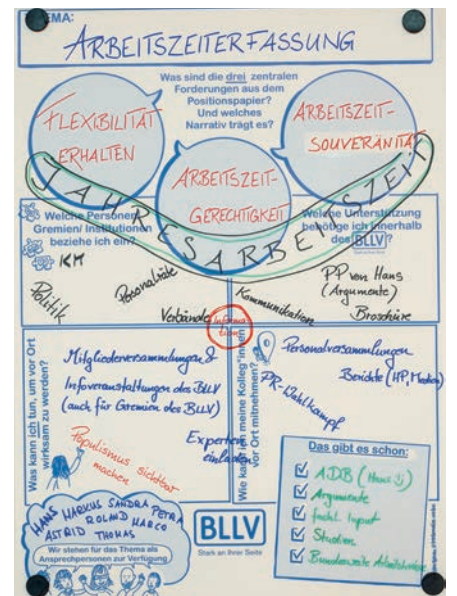 THEMA:
ARBEITSZEITERFASSUNG
Was sind die drei zentralen
Forderungen aus dem
Positionspapier?
Und welches
Narrativ trägt es?
FLEXIBILITÄT
ERHALTEN
ARBEITSZEIT-
GERECHTIGKEIT
ARBEITSZEIT-
SOUVERÄNITÄT
JAHRESARBEITSZEIT
Welche Personen/
Gremien/ Institutionen
beziehe ich ein?
KM
Politik
Personalräte
Verbände
Welche Unterstützung
benötige ich innerhalb
des BLLV?
Kommunikation
PP von Hans
(Argumente)
Broschüre
Informa
tion
Was kann ich tun, um vor Ort
wirksam zu werden?
Mitgliederversammlungen &
Infoveranstaltungen des BLLV
(auch für Gremien des BLLV)
Experten
einladen
Populismus sichtbar
machen
Wie kann ich meine Kolleg*innen
vor Ort mitnehmen?
Personalversammlungen
Berichte (HP, Medien)
PR-Wahlkampf
Das gibt es schon:
ADB (Hans)
Argumente
fachl. Input
Studien
Bundesweite
HANS MARKUS SANDRA PETRA
ROLAND MARCO
ASTRID THOMAS
Wir stehen für das Thema als
Ansprechpersonen zur Verfügung
BLLV
Stark an Ihrer Seite